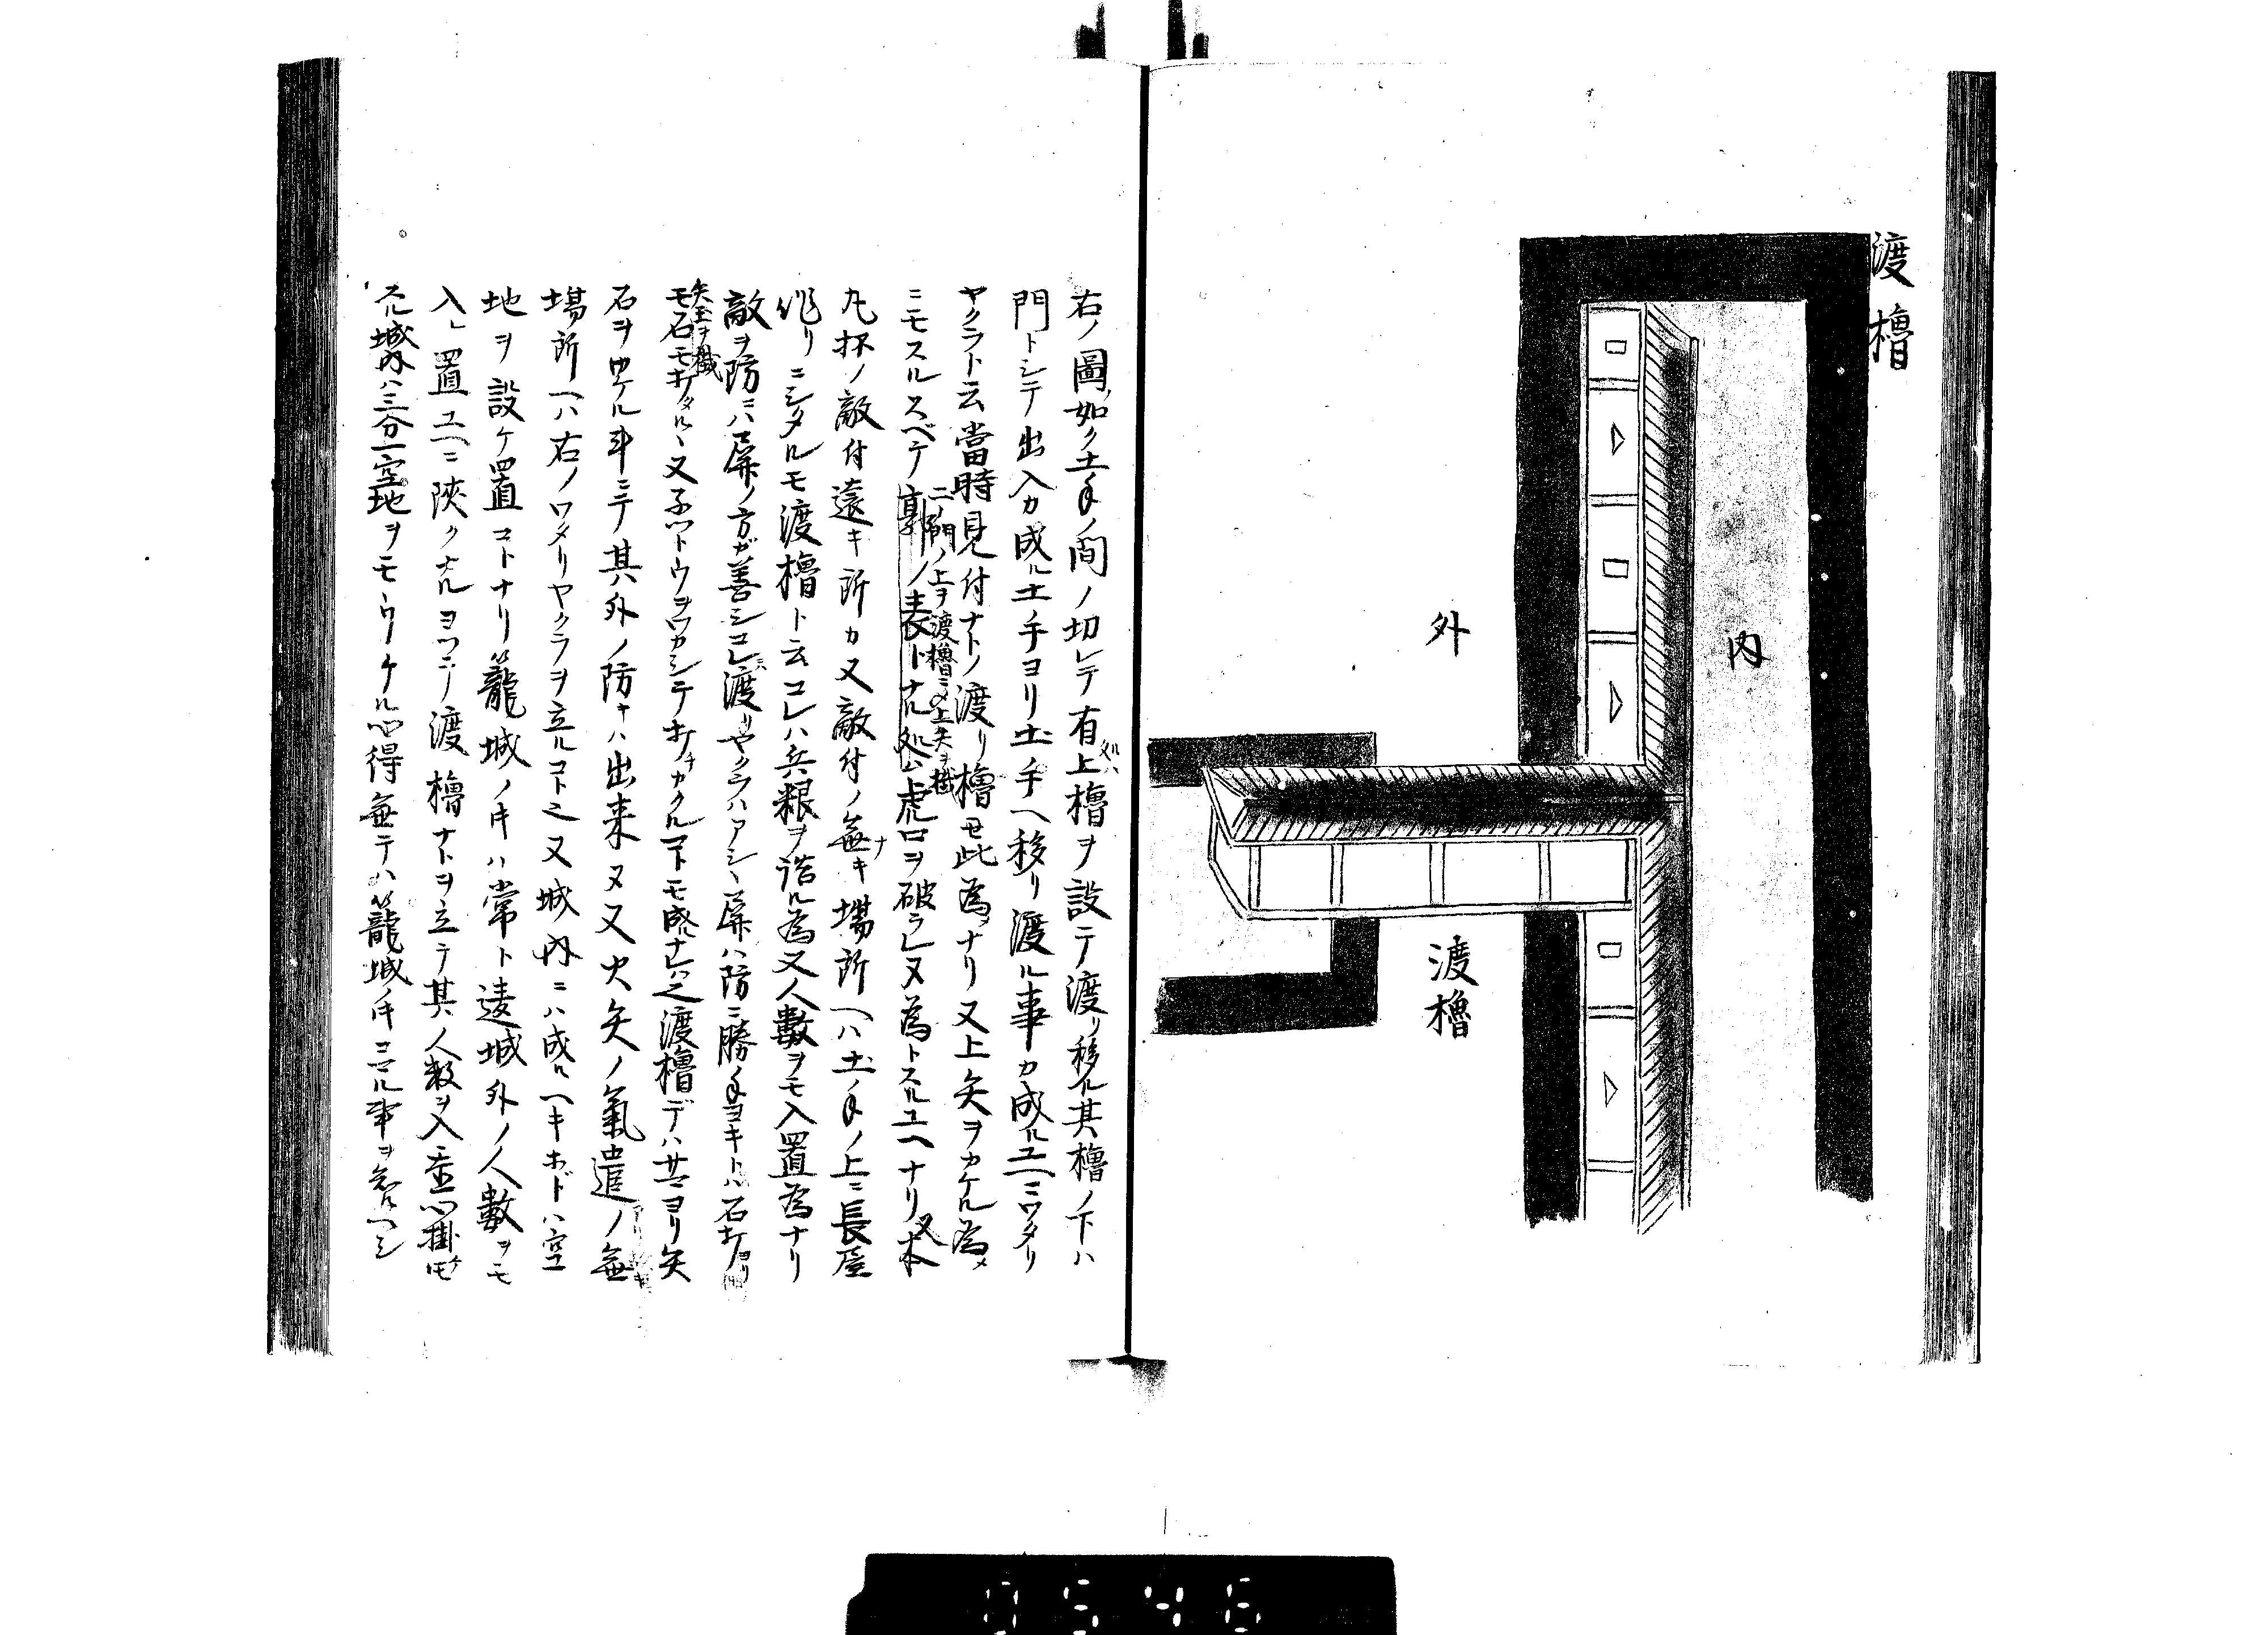 渡櫓
内
外
渡櫓
右ノ圖ノ如ク土手ノ間ノ切レテ有処ハ上櫓ヲ設テ渡リ移ル其櫓ノ下ハ
門トシテ出入カ成ル土手ヨリ土手ヘ移リ渡ル事カ成ルユヘニワタリ
ヤクラト云當時見付ナトノ渡リ櫓モ此為ナリ又上矢ヲカケル為メ
二ノ門ノ上ヲ渡櫓ニメ上矢ヲ掛
ニモスルスベテ郭ノ表トナル処ハ虎口ヲ破ラレヌ為トスルユヘナリ又本
丸抔ノ敵付遠キ所カ又敵付ノ無キ場所ヘハ土手ノ上ニ長屋
作リニシタルモ渡櫓ト云コレハ兵粮ヲ詰ル為又人數ヲモ入置為ナリ
敵ヲ防ニハ屏ノ方ガ善シコレニ渡リヤクラハアシヽ屏ハ防ニ勝手ヨキトハ石打ヨリ
矢玉ヲ楯
モ石モ打タルヽ又子ツトウヲワカシテ打チカクルコトモ成ルナレハ之渡櫓デハサマヨリ矢
石ヲ掛ケル斗ニテ其外ノ防キハ出来ヌ又火矢ノ氣遣ノ無
場所ヘハ右ノワタリヤクラヲ立ルコト之又城内ニハ成ルヘキホドハ空
地ヲ設ケ置コトナリ籠城ノ時ハ常ト違城外ノ人數ヲモ
入レ置ユヘニ陜クナルヨツテ渡櫓ナトヲ立テ其ノ人数ヲ入
城内ハ三分一空地ヲモウケル心得無テハ籠城ノ時コマル事ヲ知ルヘシ
0546